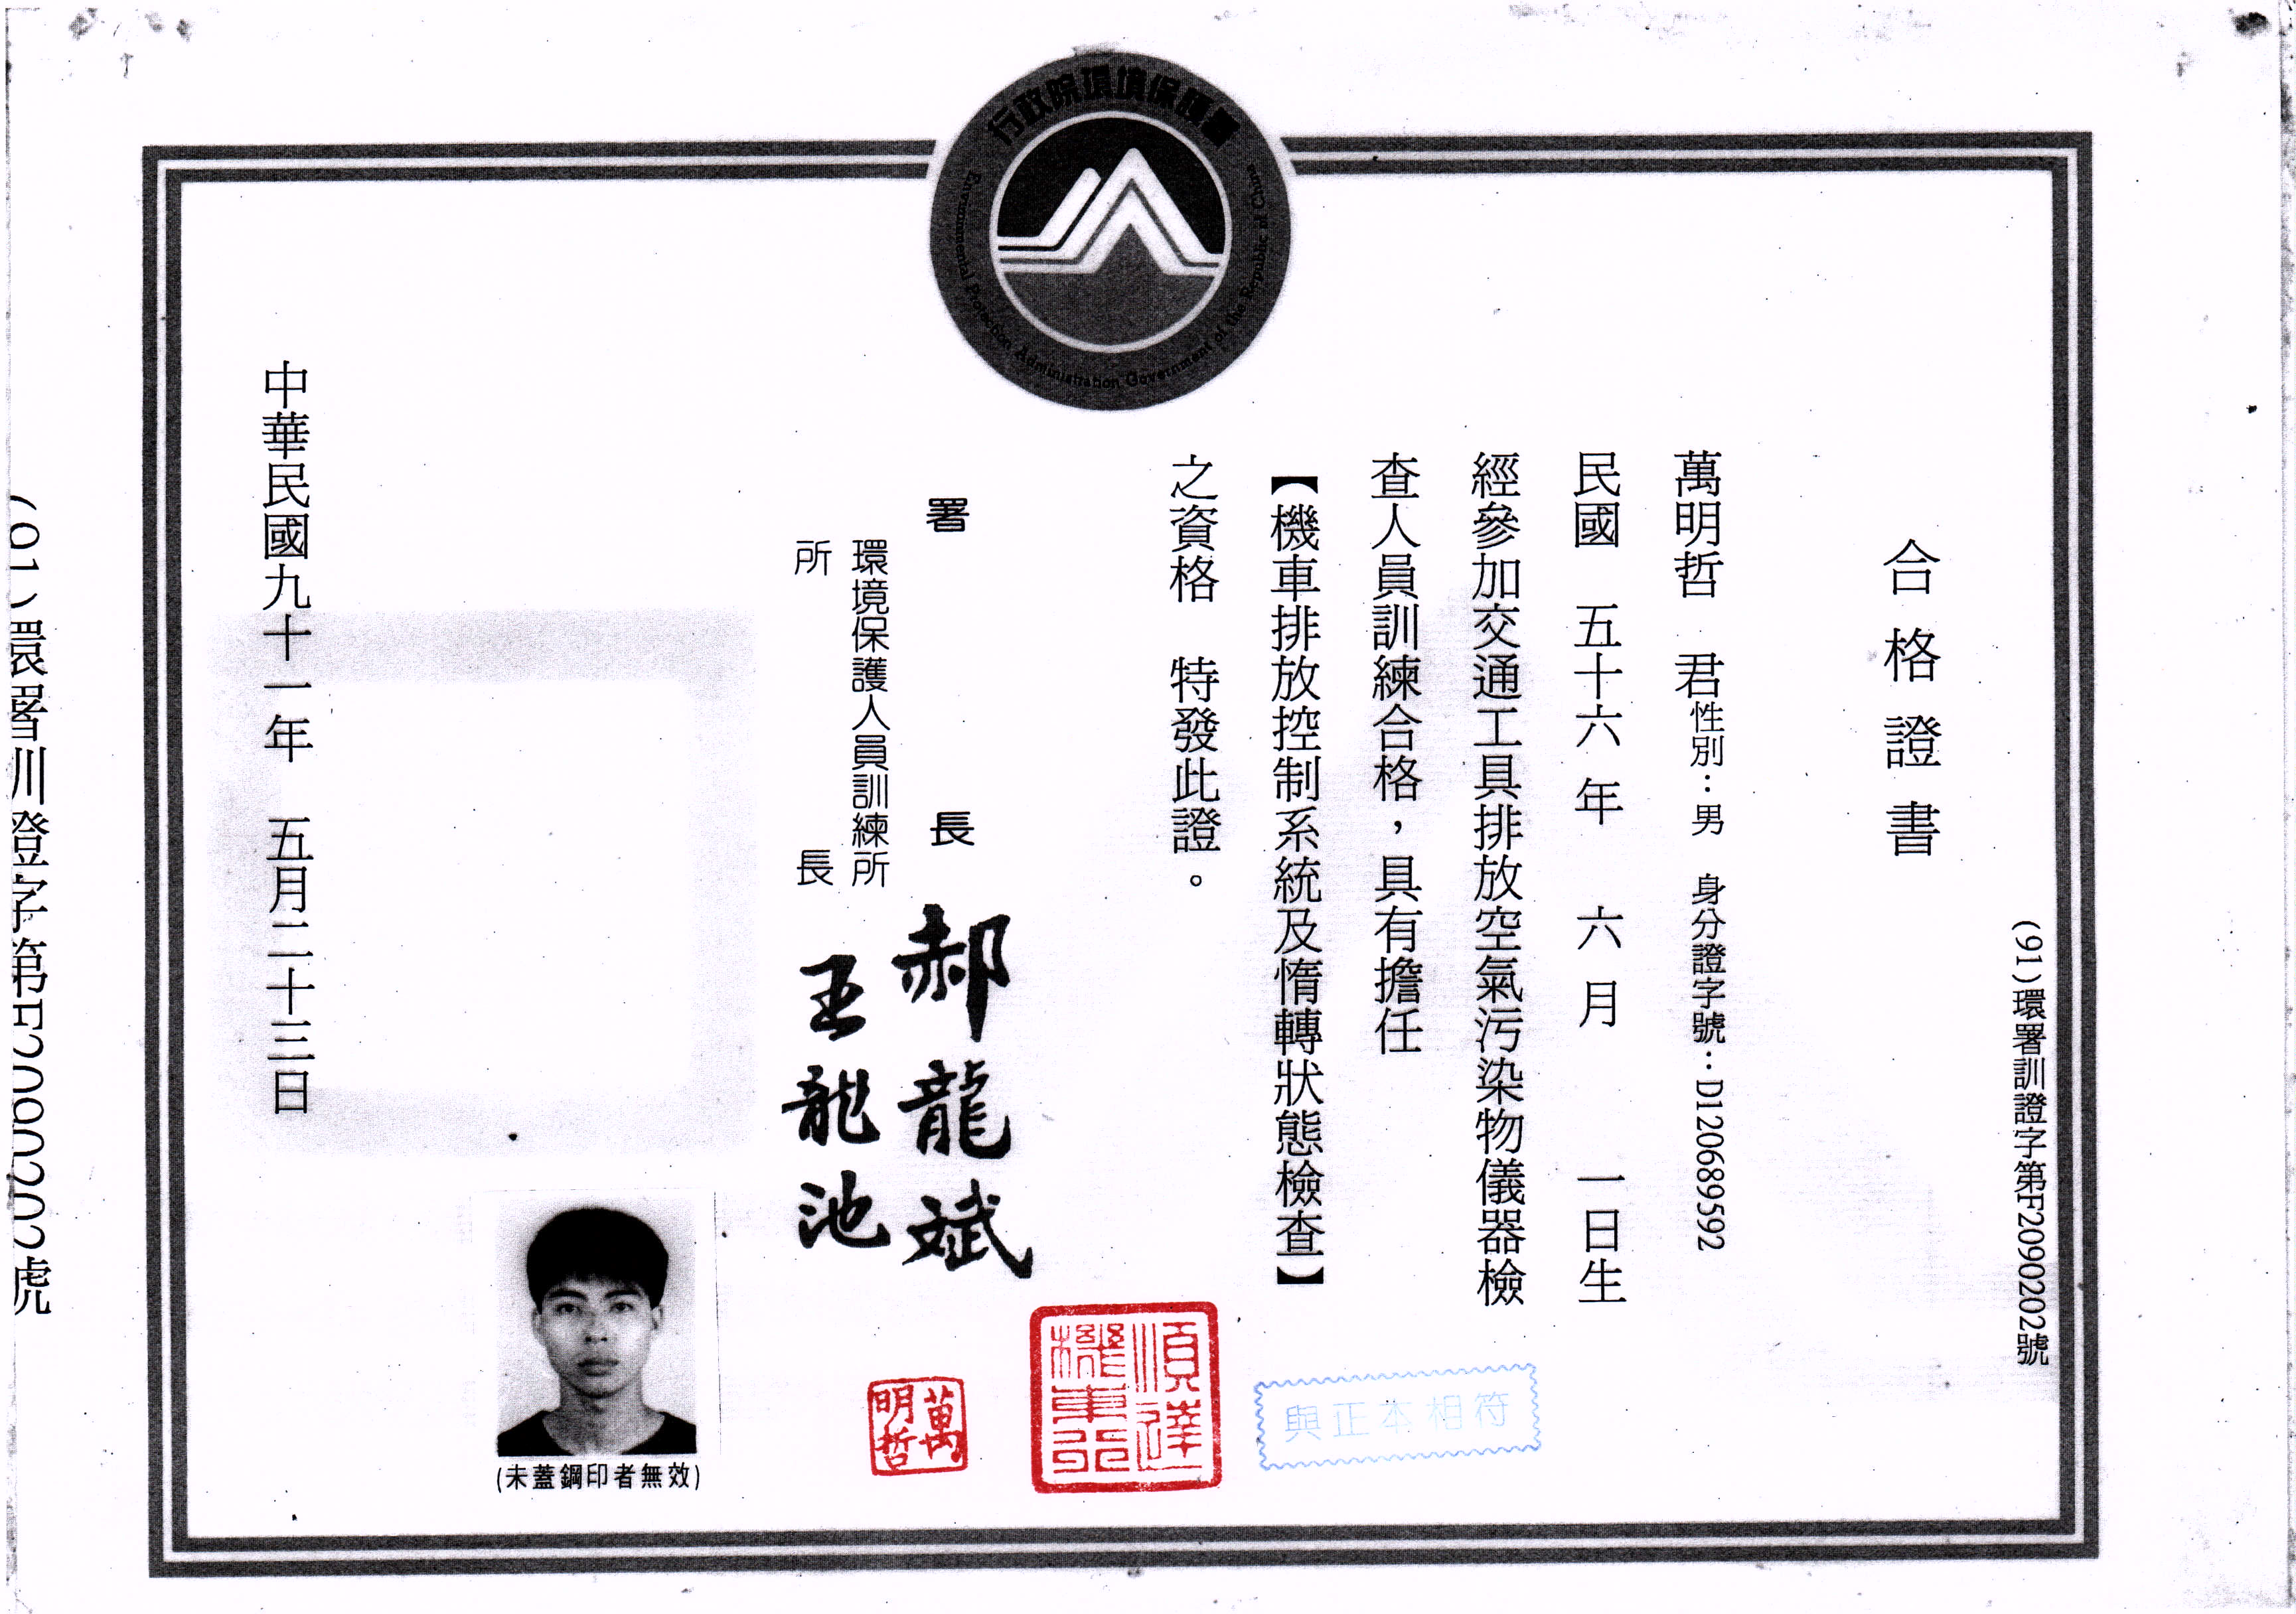 行政院環境保護署
Environmental Protection Administration Government of the Republic of China
(91)環署訓證字第F2090202號
合格證書
萬明哲 君性別：男 身分證字號：D120689592
民國 五十六年 六月 一日生
經參加交通工具排放空氣污染物儀器檢
查人員訓練合格，具有擔任
【機車排放控制系統及惰轉狀態檢查】
之資格 特發此證。
署長 郝龍斌
環境保護人員訓練所
所長 王龍池
中華民國九十一年 五月二十三日
(91)環署訓證字第F2090202號
(未蓋鋼印者無效)
萬明哲
順達機車行
與正本相符